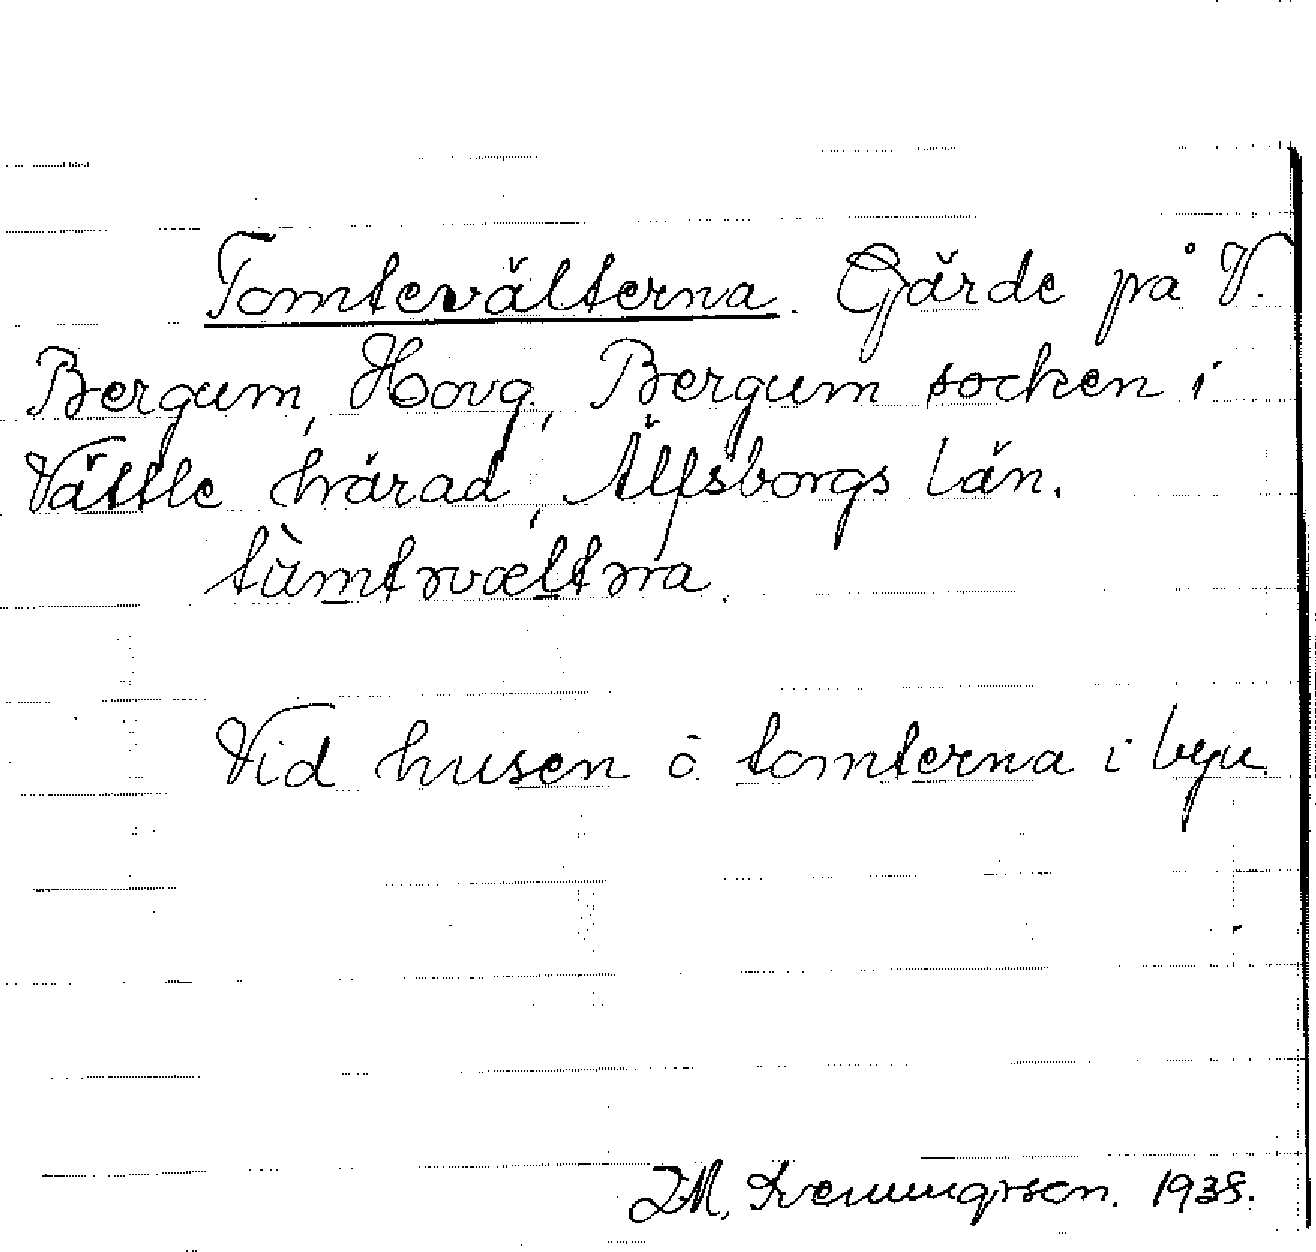 Tomtevälterna. Gärde på V.
Bergum, Hovg., Bergum socken i
Vättle härad, Älfsborgs län.
Vid husen o. tomterna i byn.
1938.